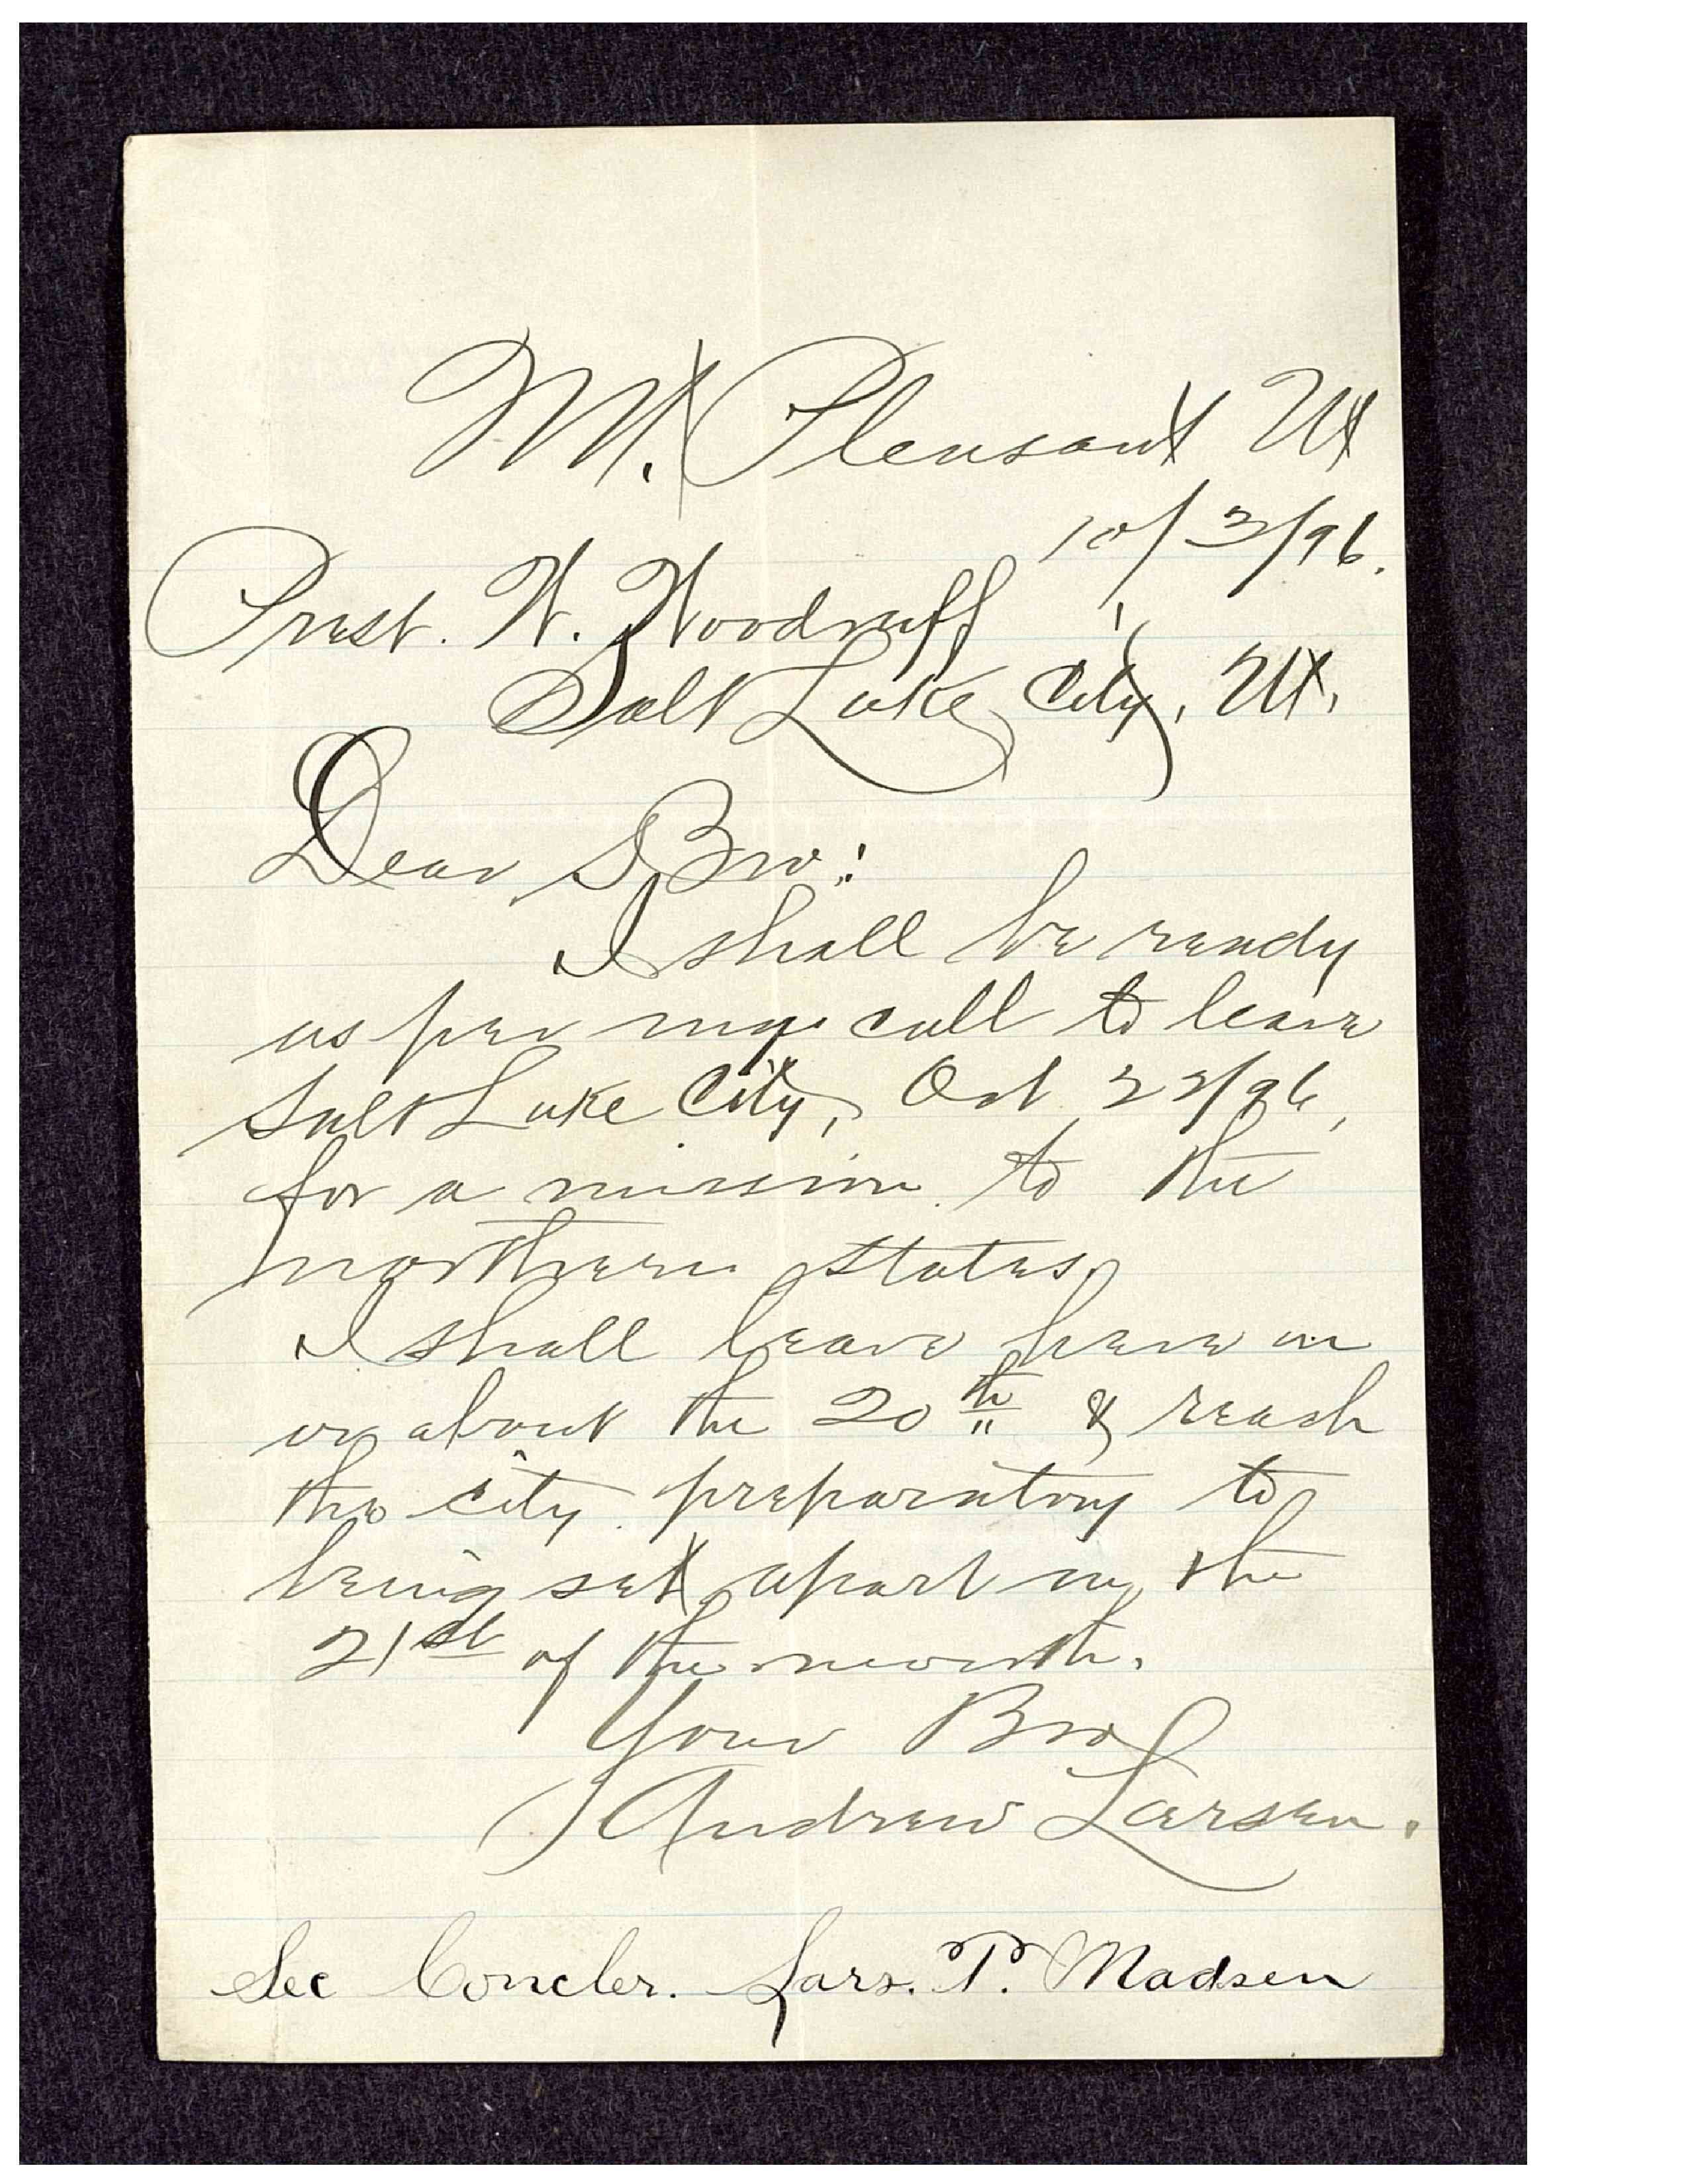 Mt. Pleasant Ut
10/3/96.
Prest. W. Woodruff
Salt Lake City, Ut,
Dear Bro.:
I shall be ready
as per my call to leave
Salt Lake City, Oct 22/96,
for a mission to the
northern states.
I shall leave here on
or about the 20th & reach
the city preparatory to
being set apart on the
21st of the month.
Your Bro
Andrew Larsen.
Sec Concler. Lars. P. Madsen